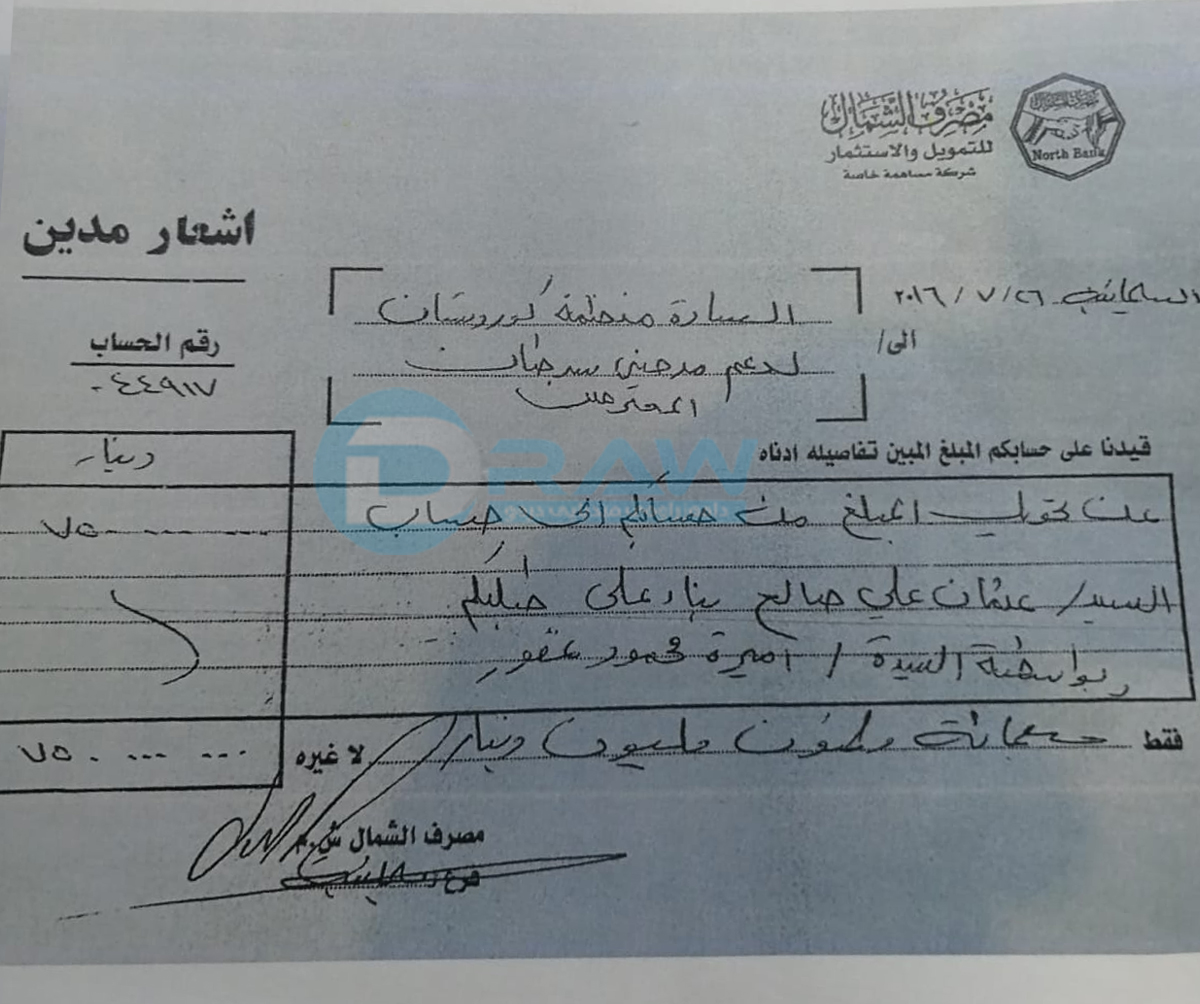 مصرف الشمال
للتمويل والاستثمار
شركة مساهمة خاصة
North Bank
اشعار مدين
السليمانية ٢٠١٦/٧/٢٦
الى/
السادة منظمة كوردستان
لدعم مدمني سرطان
المحترمين
رقم الحساب
٠٤٤٩١٧
قيدنا على حسابكم المبلغ المبين تفاصيله ادناه
دينار
عن تحويل المبلغ من حسابكم الى حساب
السيد/ عثمان علي صالح بناء على طلبكم
بواسطة السيدة / اميرة محمود غفور
فقط سبعمائة وخمسون مليون دينار لا غيره
٧٥٠ ٠٠٠ ٠٠٠
مصرف الشمال ش.م
فرع
DRAW